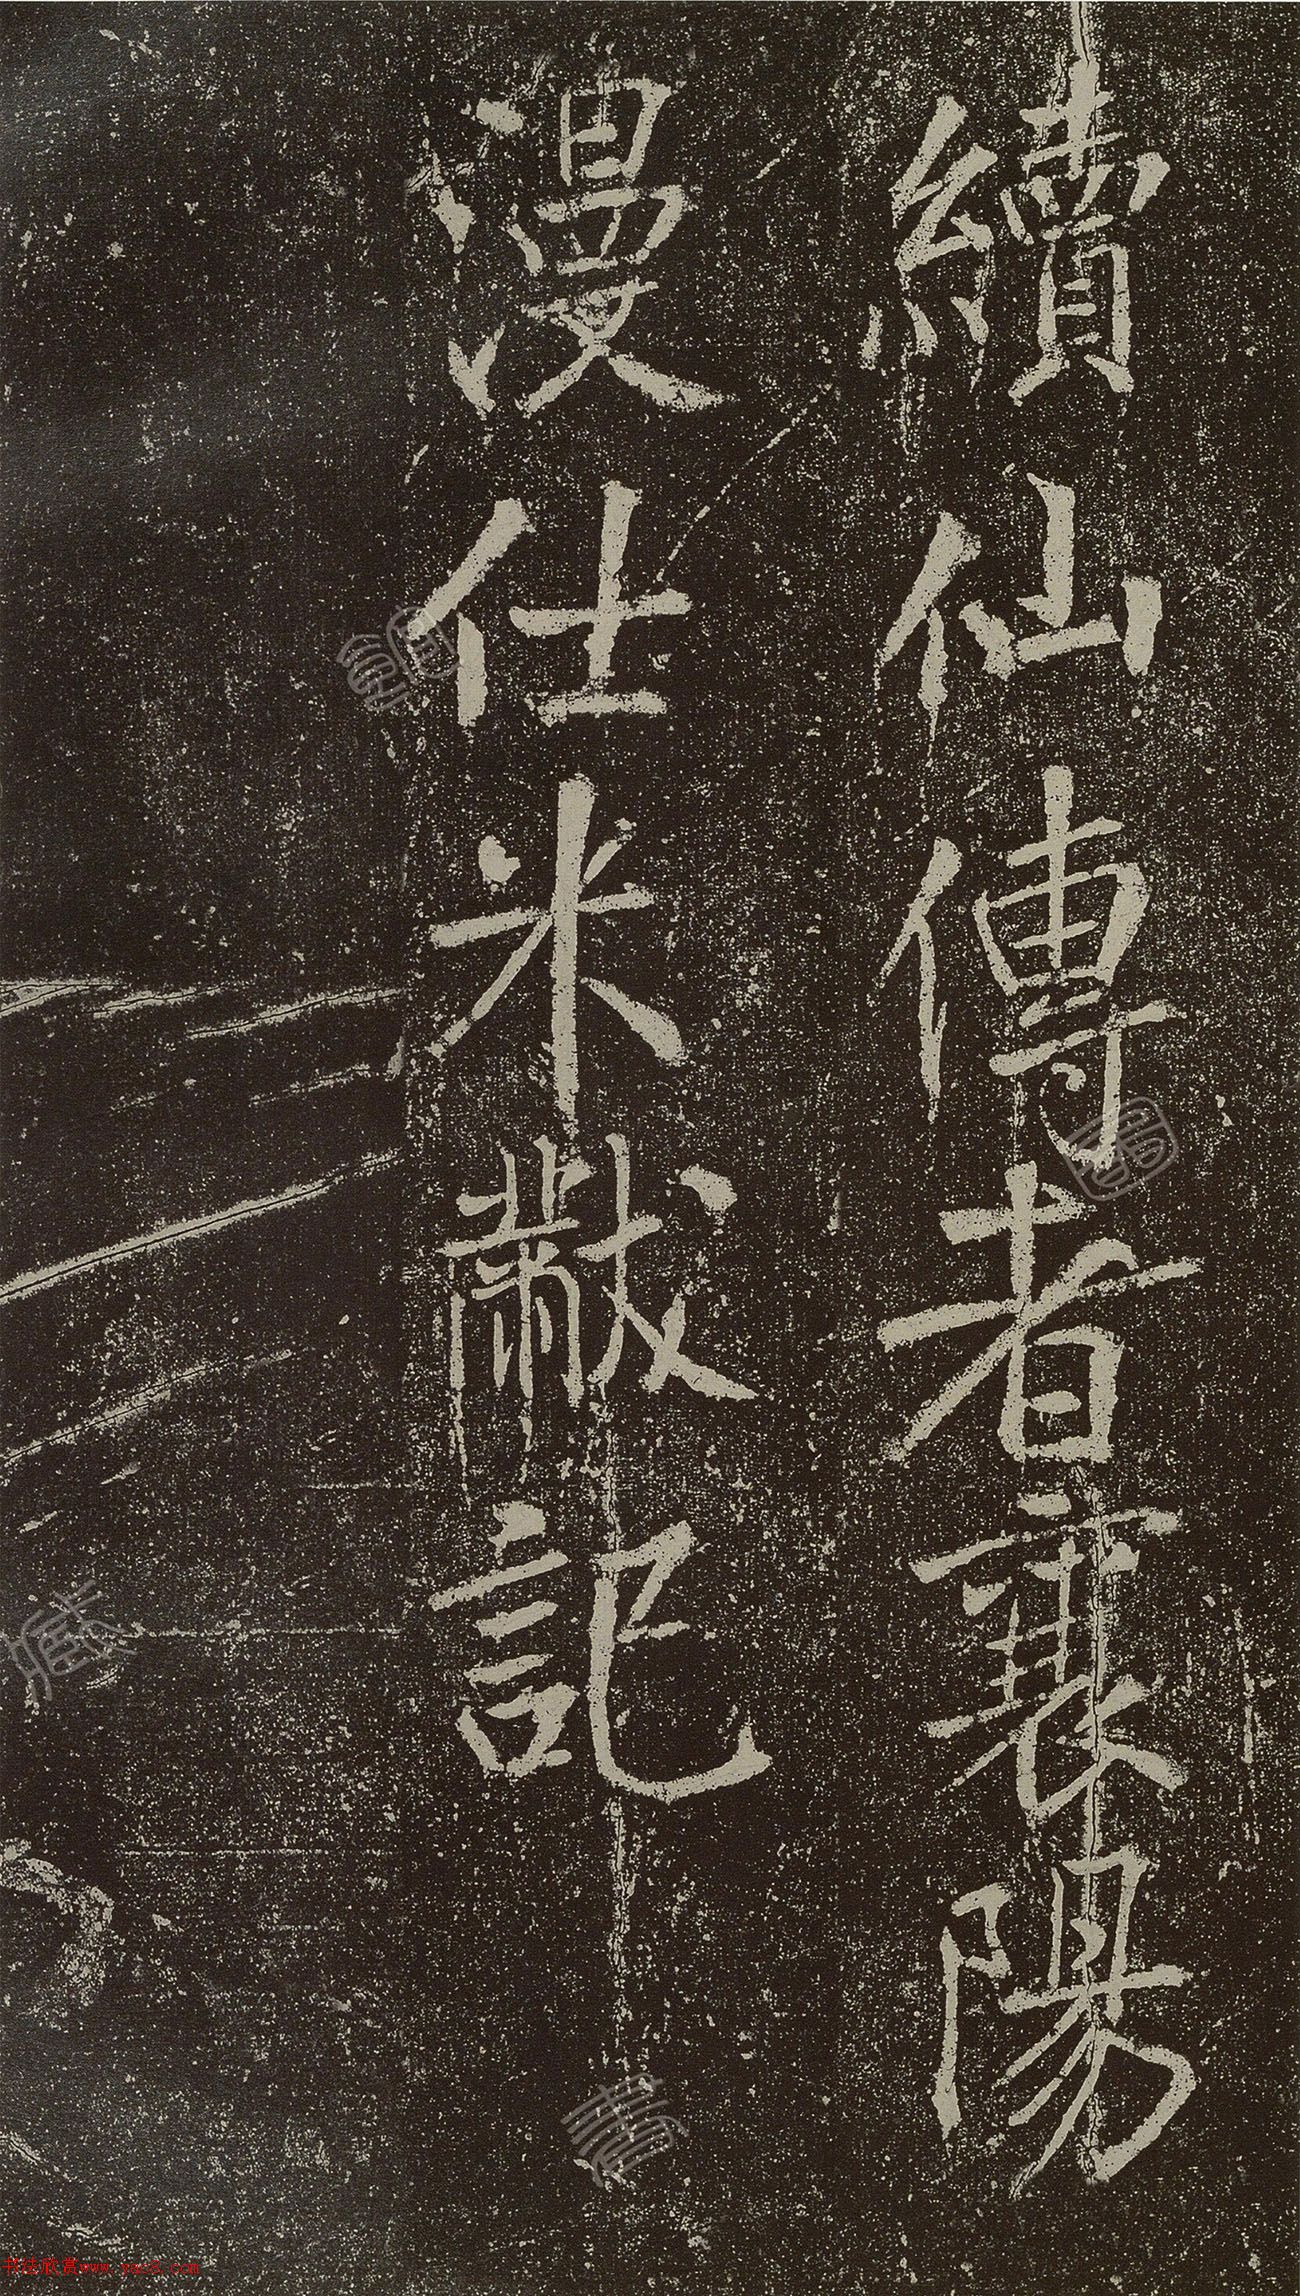 續仙傳者襄陽
漫仕米黻記
书法欣赏www.yac8.com